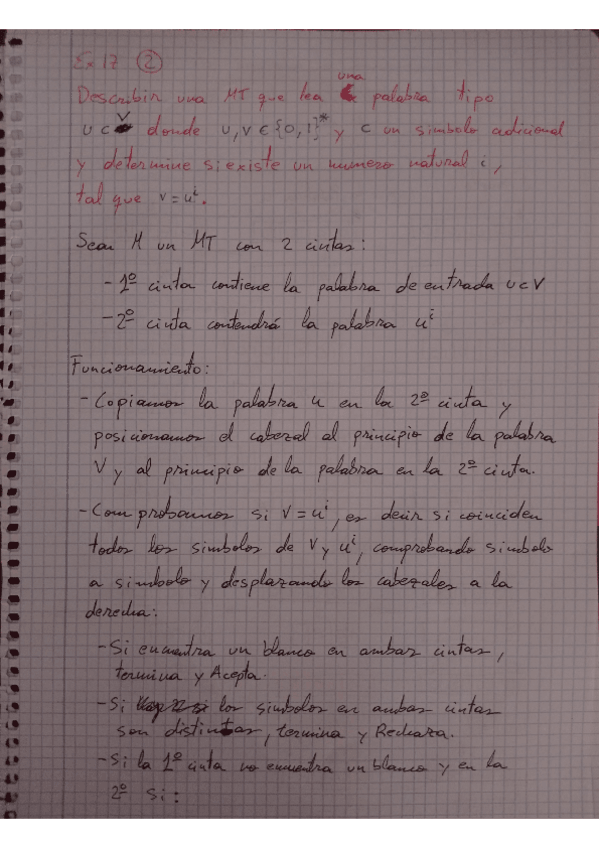 Ex 17 ②
Describir una MT que lea una palabra tipo
u c v donde u,v ∈ {0,1}* y c un simbolo adicional
y determine si existe un numero natural i,
tal que v = u^i.
Sean M un MT con 2 cintas:
- 1º cinta contiene la palabra de entrada ucv
- 2º cinta contendrá la palabra u^i
Funcionamiento:
- Copiamos la palabra u en la 2º cinta y
posicionamos el cabezal al principio de la palabra
V y al principio de la palabra en la 2º cinta.
- Comprobamos si V = u^i, es decir si coinciden
todos los simbolos de V y u^i, comprobando simbolo
a simbolo y desplazando los cabezales a la
derecha:
- Si encuentra un blanco en ambas cintas,
termina y Acepta.
- Si los simbolos en ambas cintas
son distintos, termina y Rechaza.
- Si la 1º cinta no encuentra un blanco y en la
2º si: